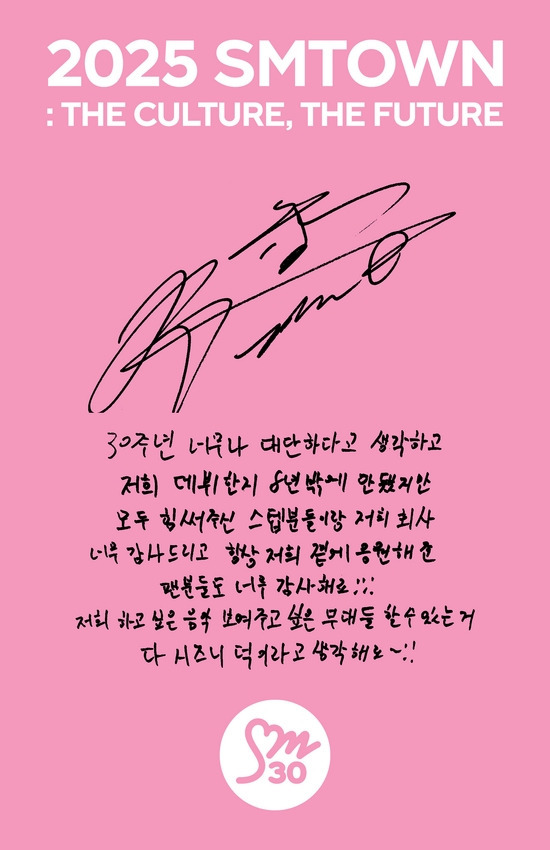 2025 SMTOWN
: THE CULTURE, THE FUTURE
30주년 너무나 대단하다고 생각하고
저희 데뷔한지 8년밖에 안됐지만
모두 힘써주신 스텝분들이랑 저희 회사
너무 감사드리고 항상 저희 곁에 응원해 준
팬분들도 너무 감사해요;;;
저희 하고 싶은 음악 보여주고 싶은 무대들 할 수 있는 거
다 시즈니 덕이라고 생각해요~!!
Sm
30